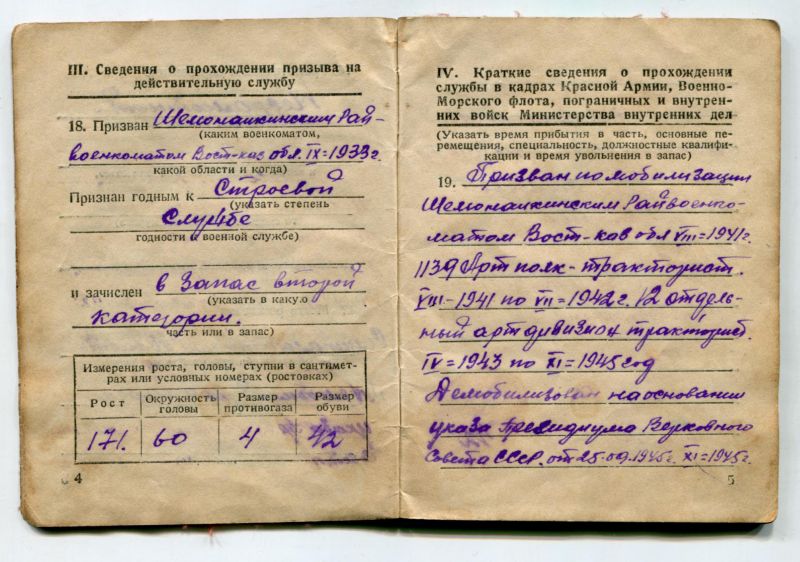 III. Сведения о прохождении призыва на
действительную службу
18. Призван Шемонаихинским Рай-
(каким военкоматом,
военкоматом Вост-каз обл. IX=1933г.
какой области и когда)
Признан годным к Строевой
(указать степень
Службе
годности к военной службе)
и зачислен в Запас второй
(указать в какую
категории.
часть или в запас)
Измерения роста, головы, ступни в сантимет-
рах или условных номерах (ростовках)
Рост Окружность головы Размер противогаза Размер обуви
171. 60 4 42
4
IV. Краткие сведения о прохождении
службы в кадрах Красной Армии, Военно-
Морского флота, пограничных и внутрен-
них войск Министерства внутренних дел
(Указать время прибытия в часть, основные пе-
ремещения, специальность, должностные квалифи-
кации и время увольнения в запас)
19. Призван по мобилизации
Шемонаихинским Райвоенко-
матом Вост-каз обл VIII=1941г.
1139 Арт полк-тракторист.
VIII-1941 по VII=1942г. 12 отдель-
ный артдивизион тракторист.
IV=1943 по XI=1945 год
Демобилизован на основании
указа Президиума Верховного
Совета СССР. от 25.09.1945г. XI=1945г.
5